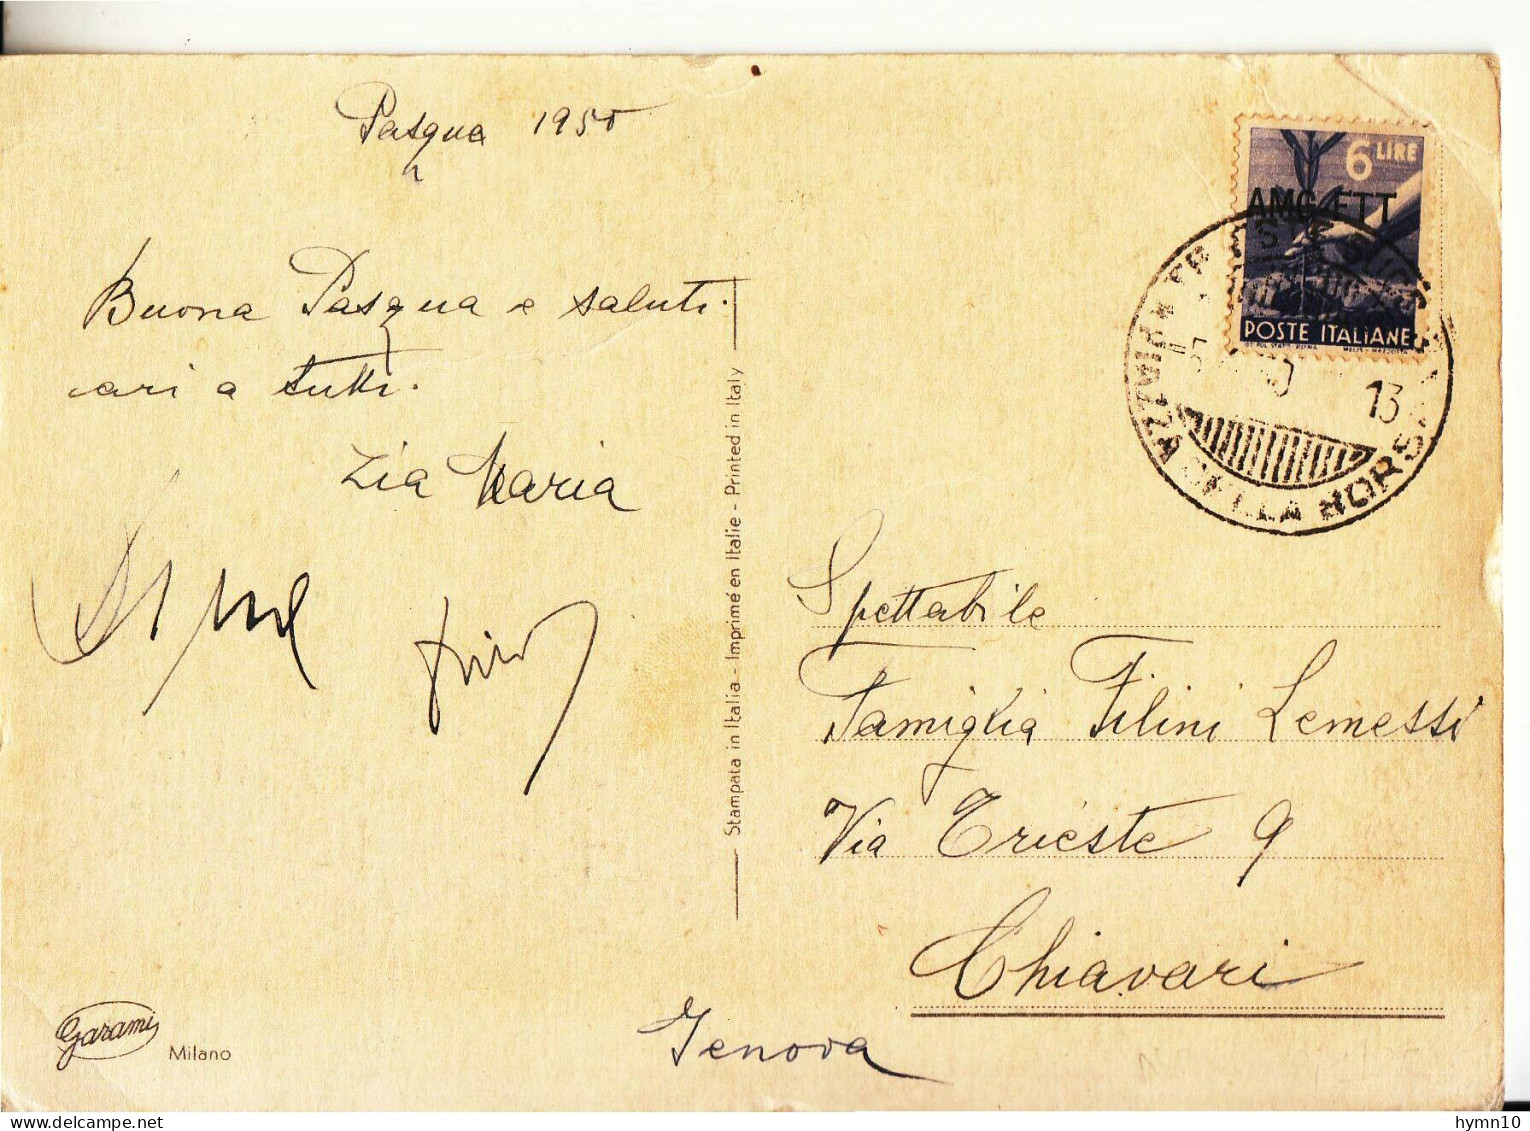 Pasqua 1950
Buona Pasqua e saluti
cari a tutti.
Zia Maria
Garami
Milano
Stampata in Italia - Imprimé en Italie - Printed in Italy
6 LIRE
AMG FTT
POSTE ITALIANE
PIAZZA DELLA BORSA
13
Spettabile
Famiglia Filini Lemessi
Via Trieste 9
Chiavari
Genova
hymn10